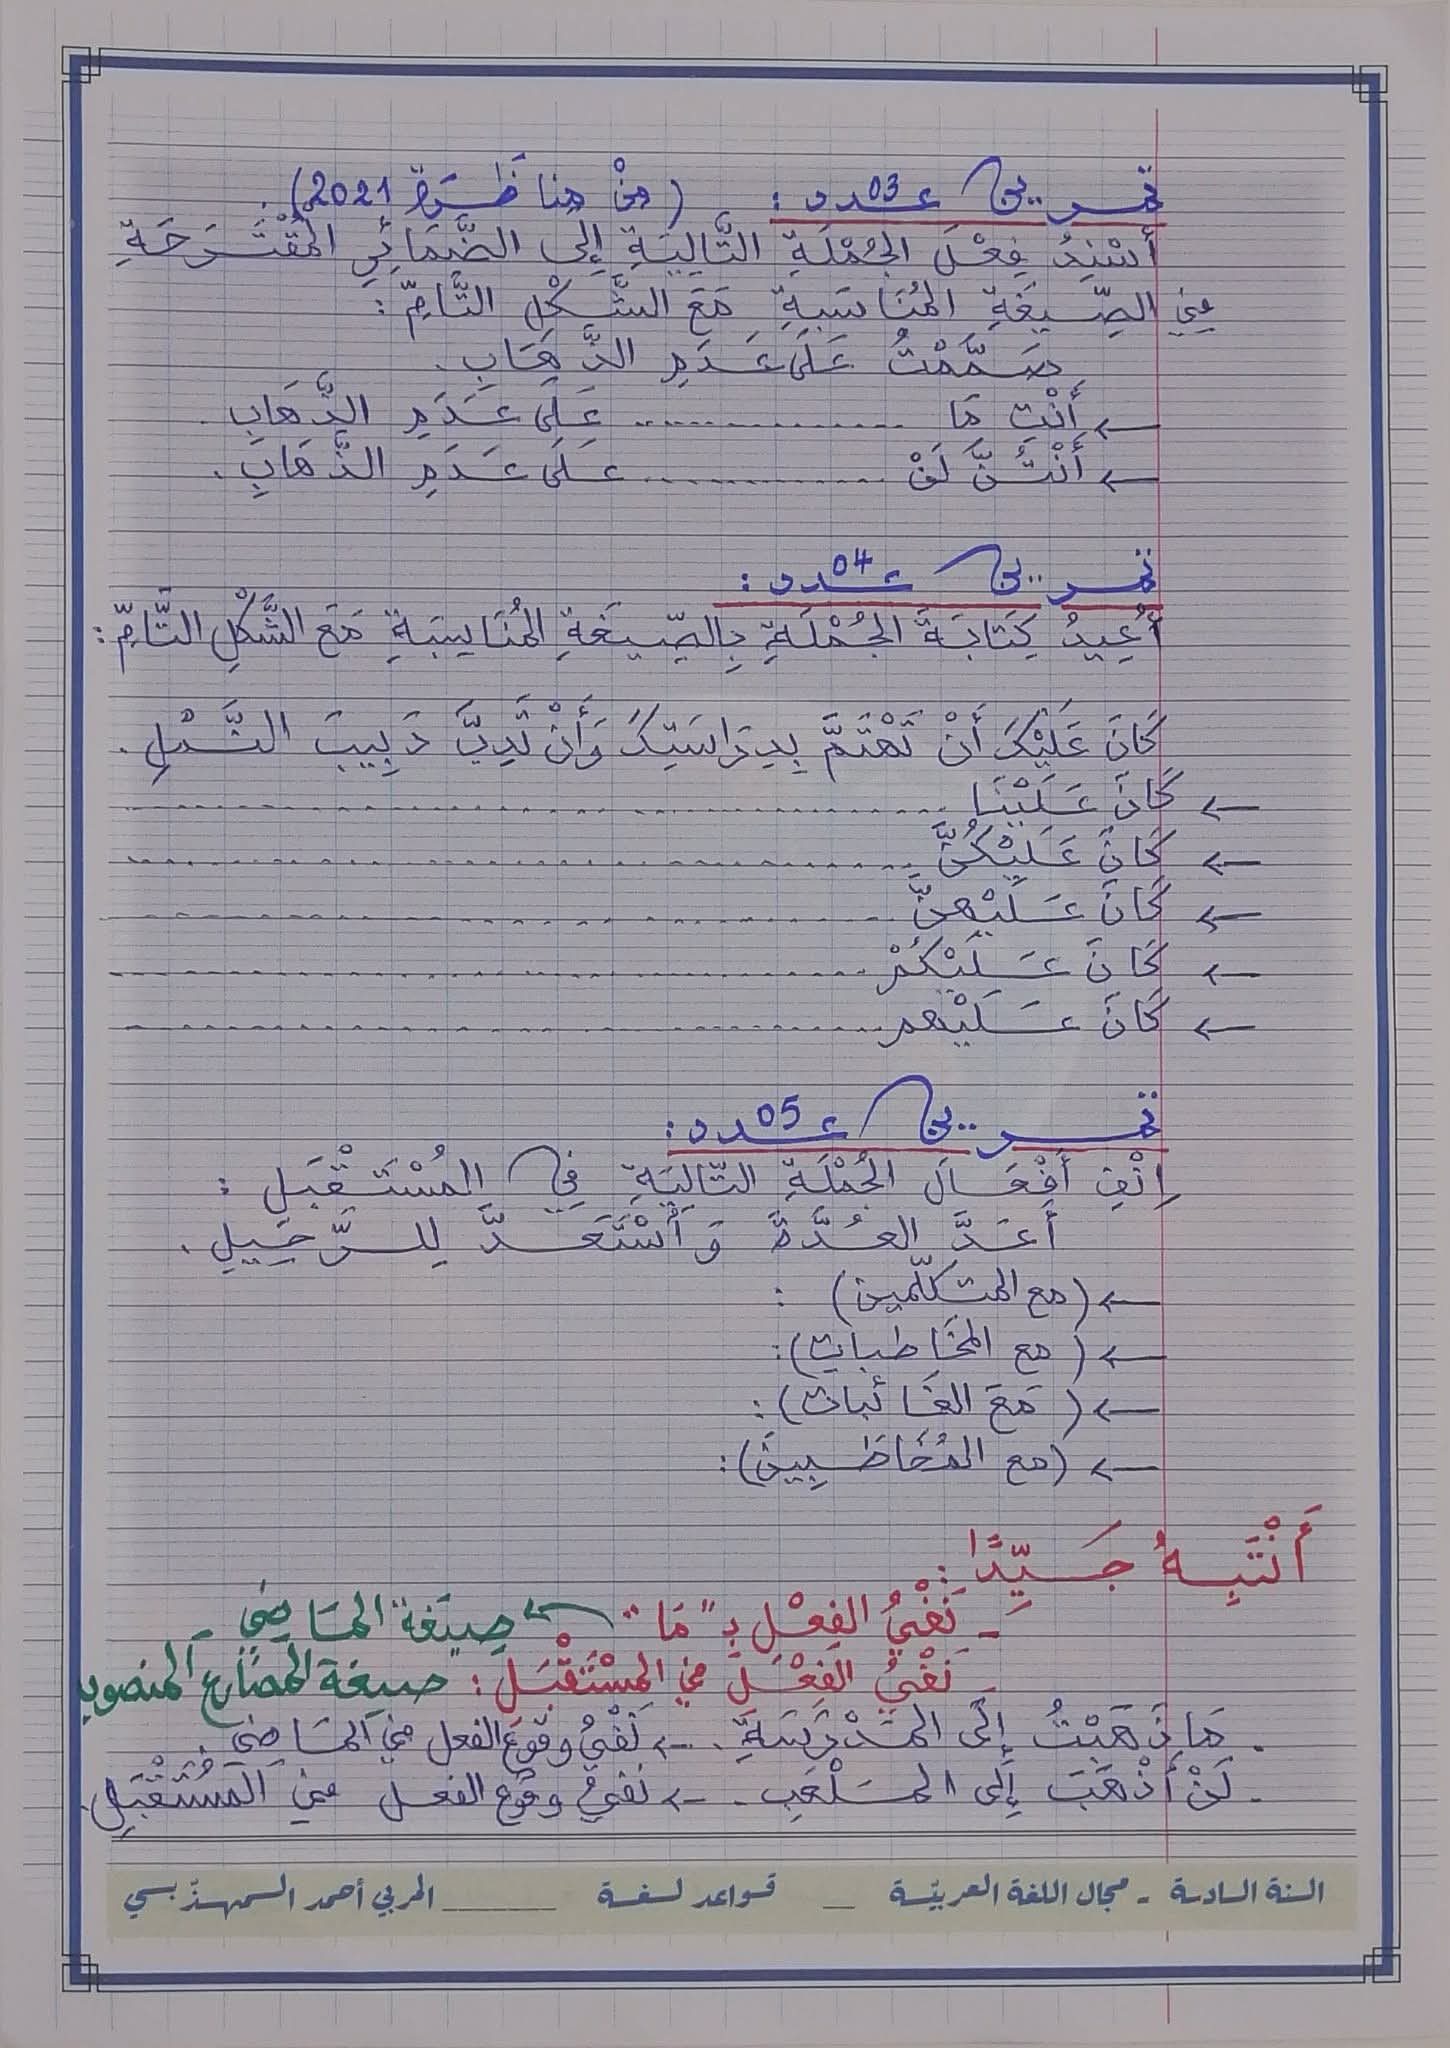 تمرين عـ03ـدد : (من مناظرة 2021).
أُسْنِدُ فِعْلَ الجُمْلَةِ التَّالِيَةِ إِلى الضَّمَائِرِ المُقْتَرَحَةِ
فِي الصِّيغَةِ المُنَاسَبِةِ مَعَ الشَّكْلِ التَّامِّ :
صَمَّمْتُ عَلَى عَدَمِ الذَّهَابِ.
← أَنْتِ مَا ............... عَلَى عَدَمِ الذَّهَابِ.
← أَنْتُنَّ لَنْ ............... عَلَى عَدَمِ الذَّهَابِ.
تمرين عـ04ـدد :
أُعِيدُ كِتَابَةَ الجُمْلَةِ بِالصِّيغَةِ المُنَاسِبَةِ مَعَ الشَّكْلِ التَّامِّ :
كَانَ عَلَيْكَ أَنْ تَهْتَمَّ بِدِرَاسَتِكَ وَأَنْ تَدِبَّ دَبِيبَ النَّمْلِ.
← كَانَ عَلَيْنَا ...............
← كَانَ عَلَيْكُنَّ ...............
← كَانَ عَلَيْهِنَّ ...............
← كَانَ عَلَيْكُمْ ...............
← كَانَ عَلَيْهم ...............
تمرين عـ05ـدد :
اِنْفِ أَفْعَالَ الجُمْلَةِ التَّالِيَةِ فِي المُسْتَقْبَلِ :
أَعَدَّ العُدَّةَ وَاسْتَعَدَّ لِلرَّحِيلِ.
← (مع المتكلّمين) :
← (مع المخَاطبات) :
← (مَعَ الغَائبات) :
← (مع المُخَاطَبِينَ) :
أَنْتَبِهُ جَيِّدًا :
- نَفْيُ الفِعْلِ بِـ "مَا" ← صِيغَة المَاضِي -
- نَفْيُ الفِعْلِ في المسْتَقْبَلِ : صيغة المضَارع المنصوب
. مَا ذَهَبْتُ إِلَى المَدْرَسَةِ. ← نَفْيُ وقوع الفعل في المَاضِي.
. لَنْ أَذْهَبَ إِلَى المَلْعَبِ. ← نَفيُ وقوع الفعل في المُسْتَقْبَلِ.
السنة السادسة - مجال اللغة العربيّة _ قواعد لغة ______ المربي أحمد